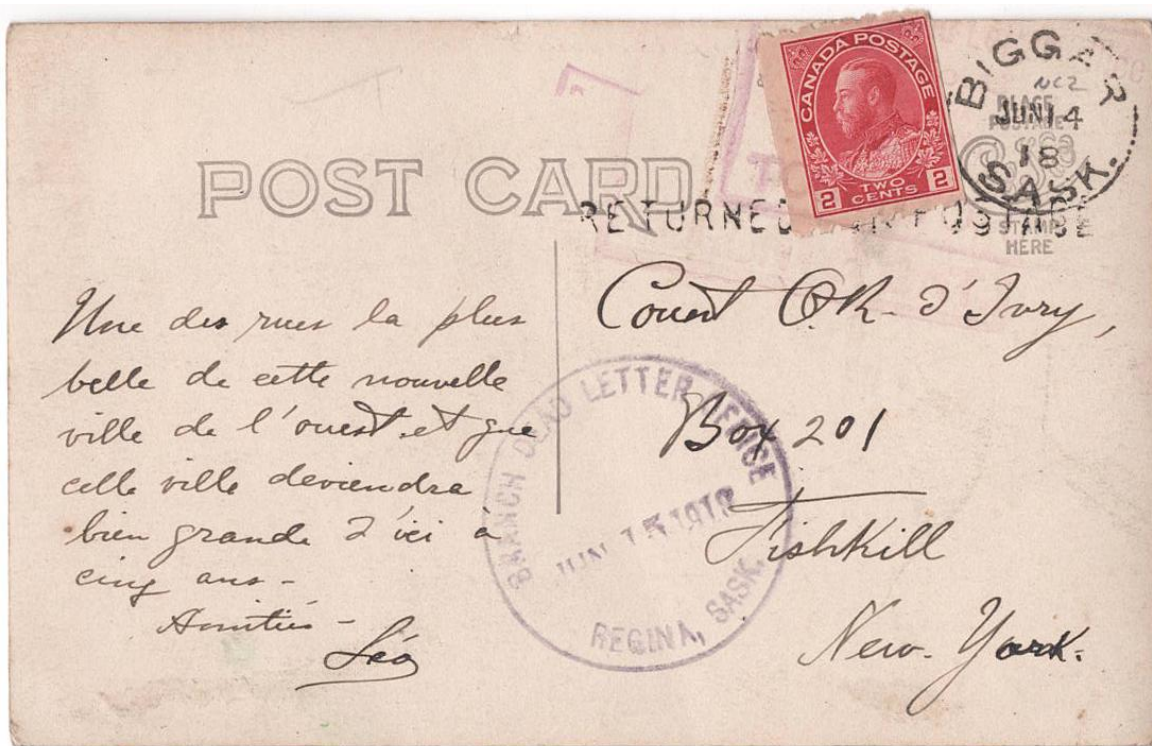 CANADA POSTAGE
2 TWO CENTS 2
BIGGAR
NC2
JUN 14
18
SASK.
PLACE
POSTAGE
STAMP
HERE
POST CARD
RETURNED FOR POSTAGE
Une des rues la plus
belle de cette nouvelle
ville de l'ouest et que
celle ville deviendra
bien grande d'ici à
cinq ans -
Amitiés -
Léo
Count O.R. d'Ivry,
Box 201
Fishkill
New-York.
BRANCH DEAD LETTER OFFICE
JUN 15 1918
REGINA, SASK.